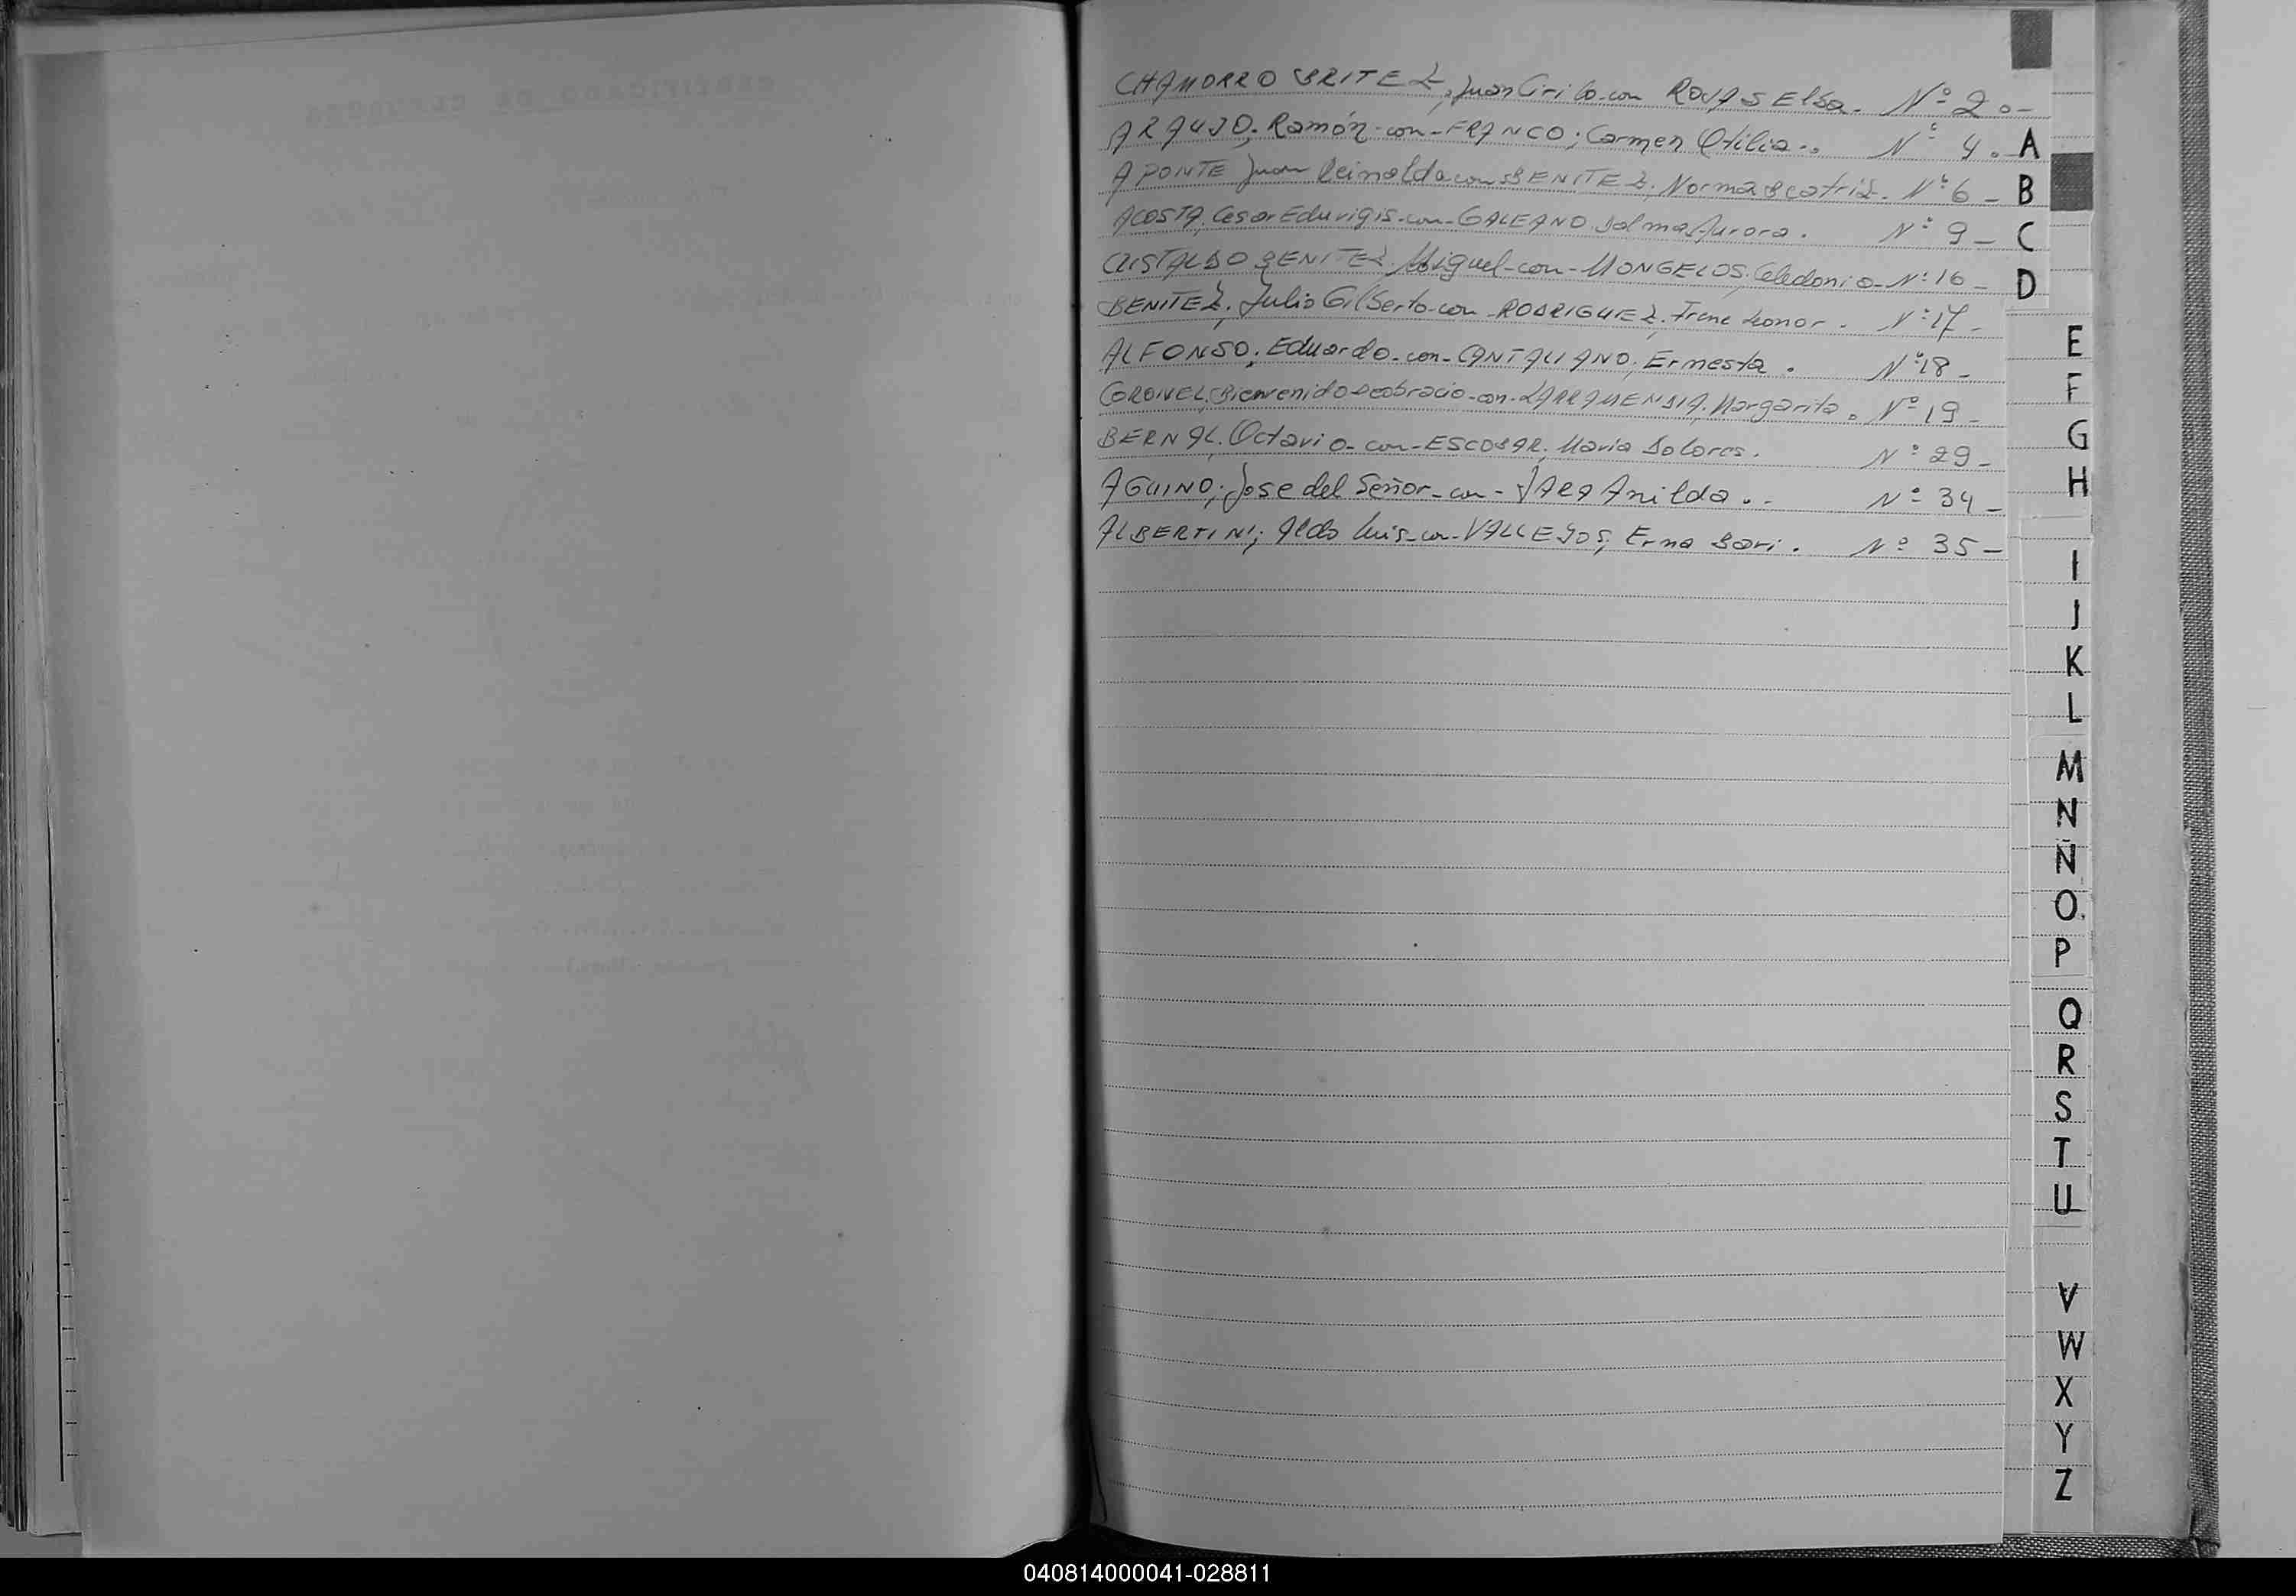 CHAMORRO BRITEZ, Juan Cirilo-con ROJAS Elsa. Nº 20-
ARAUJO; Ramón-con-FRANCO; Carmen Otilia.. Nº 4.
APONTE Juan Reinaldo con BENITEZ, Norma Beatriz. Nº 6-
ACOSTA, Cesar Eduvigis-con-GALEANO Dalma Aurora. Nº 9-
CRISTALDO BENITEZ, Miguel-con-MONGELOS, Celedonia-Nº 16-
BENITEZ, Julio Gilberto-con-RODRIGUEZ, Irene Leonor. Nº 17-
ALFONSO; Eduardo-con-CANTALIANO, Ermesta. Nº 18-
CORONEL, Bienvenido con- Margarita. Nº 19-
BERNAL, Octavio-con-ESCOBAR, Maria Dolores. Nº 29-
AQUINO; Jose del Señor-con-JARA Anilda.. Nº 34-
ALBERTINI; Aldo Luis-con-VALLEJOS, Erna Sari. Nº 35-
A
B
C
D
E
F
G
H
I
J
K
L
M
N
Ñ
O
P
Q
R
S
T
U
V
W
X
Y
Z
040814000041-028811